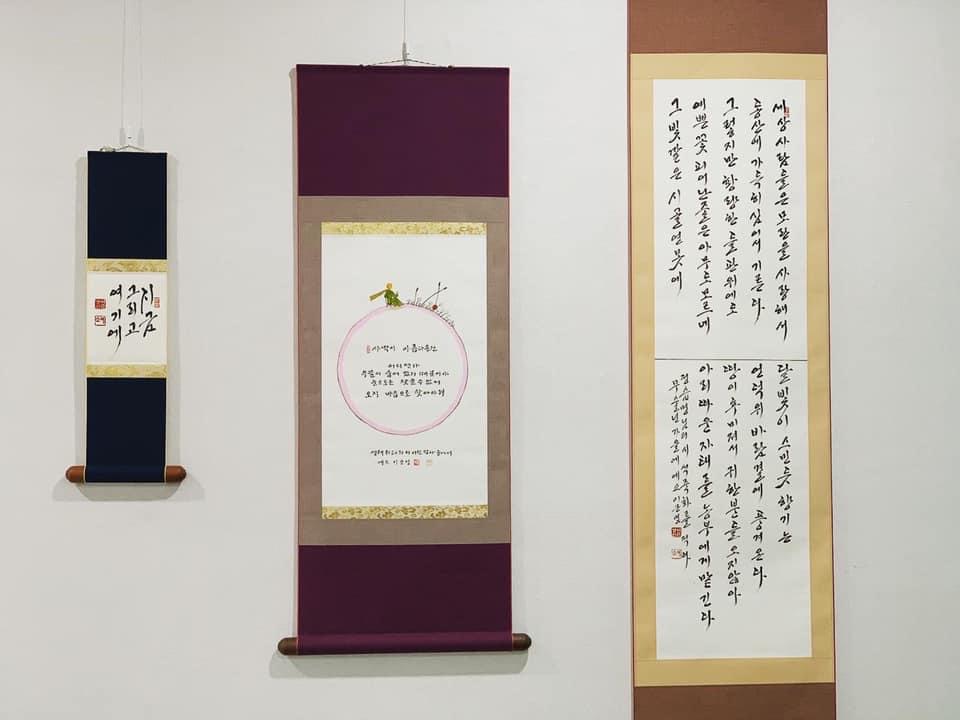 지금
그리고
여기에
사막이 아름다운건
어디엔가
우물이 숨어 있기 때문이야
눈으로는 찾을 수 없어
오직 마음으로 찾아야해
어린 왕자 중에서
세상사람들은 모란을 사랑해서
동산에 가득히 심어서 기른다
그렇지만 황량한 들판위에도
예쁜 꽃 피어난줄은 아무도 모르네
그 빛깔은 시골연못에
달빛이 스민듯 향기는
언덕위 바람결에 풍겨온다
땅이 후미져서 귀한분들 오지않아
아리따운자태를 농부에게 맡긴다
정습명님의 시 석죽화를 적다
무술년 가을에